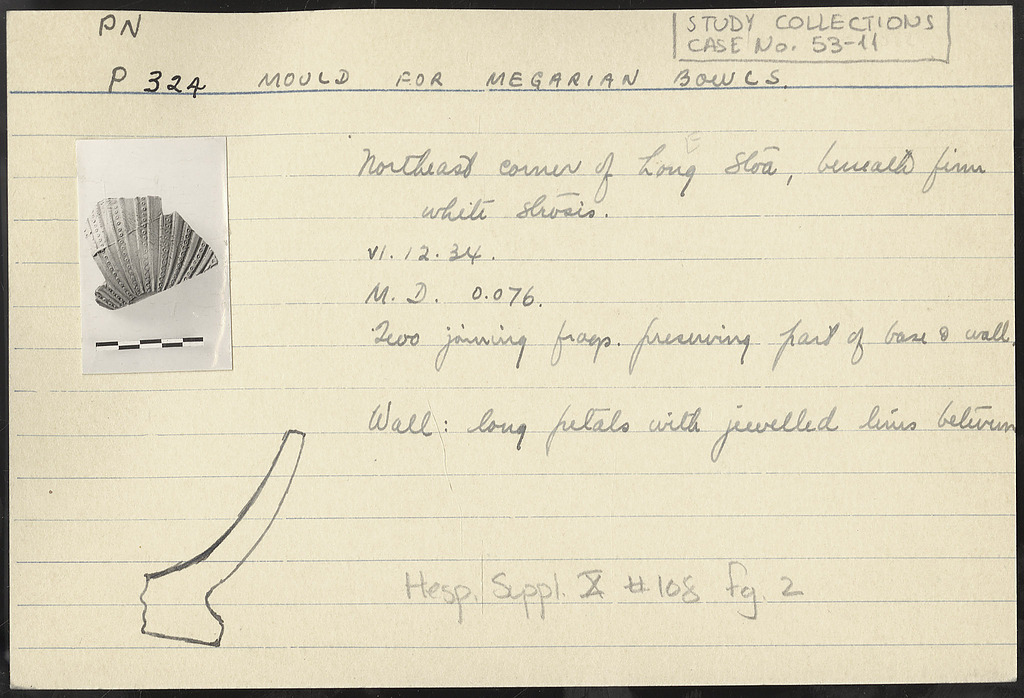 PN
STUDY COLLECTIONS
CASE No. 53-11
P 324 MOULD FOR MEGARIAN BOWLS.
Northeast corner of Long Stoa, beneath firm
white strosis.
VI. 12. 34.
M. D. 0.076.
Two joining frags. preserving part of base & wall.
Wall: long petals with jewelled lines between
Hesp. Suppl. X #108 fg. 2